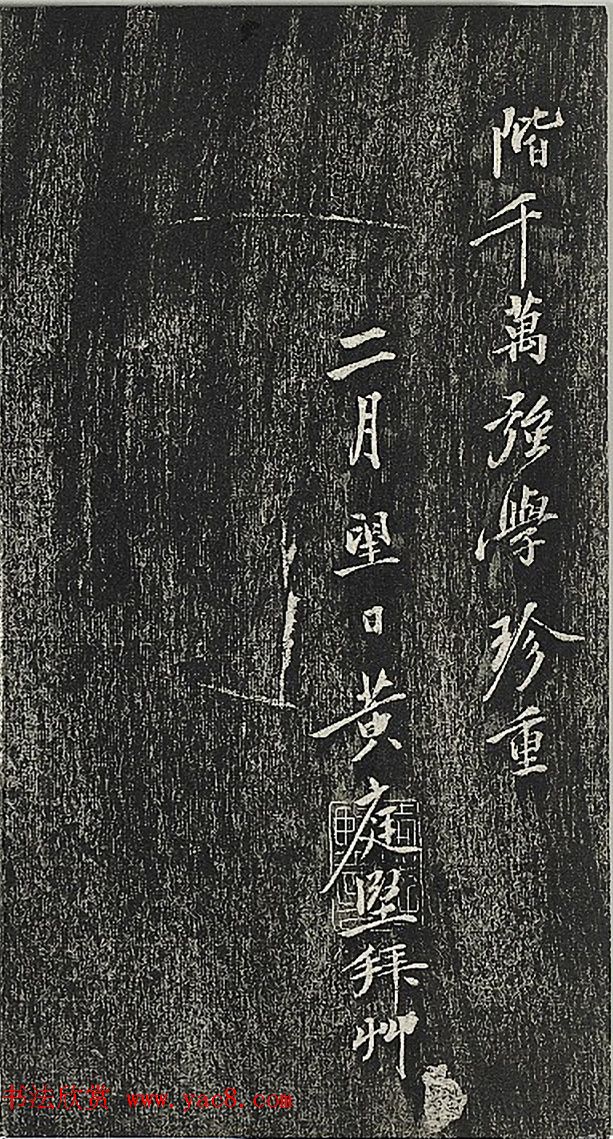 階千萬強學珍重
二月望日黃庭堅拜艸
书法欣赏 www.yac8.com